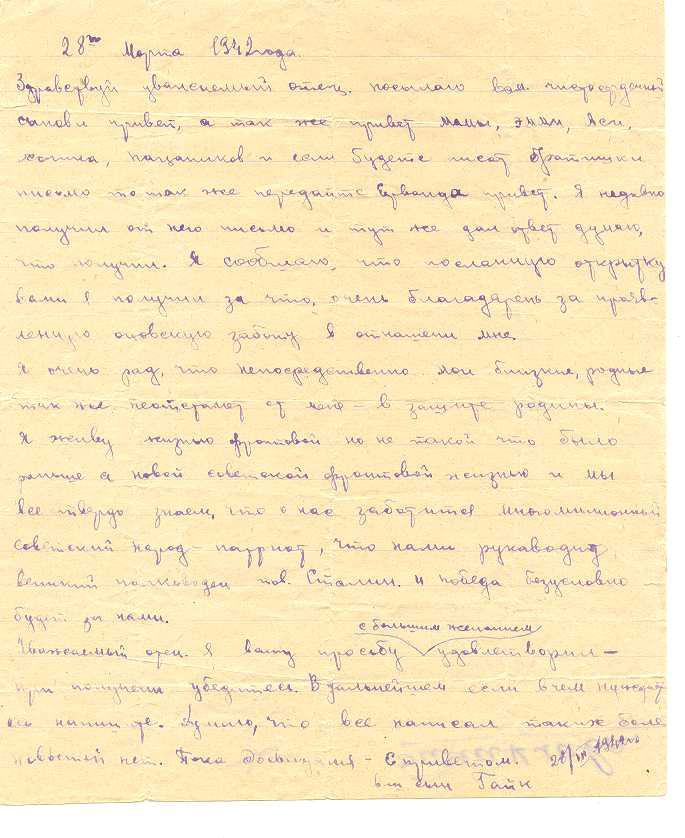 28го Марта 1942 года.
Здравствуй уважаемый отец. посылаю вам чистосердечный
сыновн привет, а так же привет мамы, Эмми, Аси,
пацанчиков и если будете писат братишки
письмо то так же передайте Ерванда привет. Я недавно
получил от него письмо и тут же дал ответ думаю,
что получил. Я сообщаю, что посланную открытку
вами я получил за что, очень благодарень за прояв-
ленную отцовскую заботу в отнашени мне.
Я очень рад, что непосредственно мои близкие, родные
так же неотстают от меня - в защите родины.
Я живу жизнью фронтовой но не такой что было
раньше а новой советской фронтовой жизнью и мы
все твердо знаем, что о нас заботится многомилионный
советский народ - патриот, что нами рукаводит
великий полководец тов. Сталин. и победа безусловно
будет за нами.
с большим желанием
Уважаемый отец. Я вашу просьбу удовлетворил -
при получени убедитесь. В дальнейшем если в чем нуждает
есь напишите. Думаю, что все написал такиж боле
новостей нет. Пока досвидания - С приветом. 28/III 1942го
ваш сын Гайк